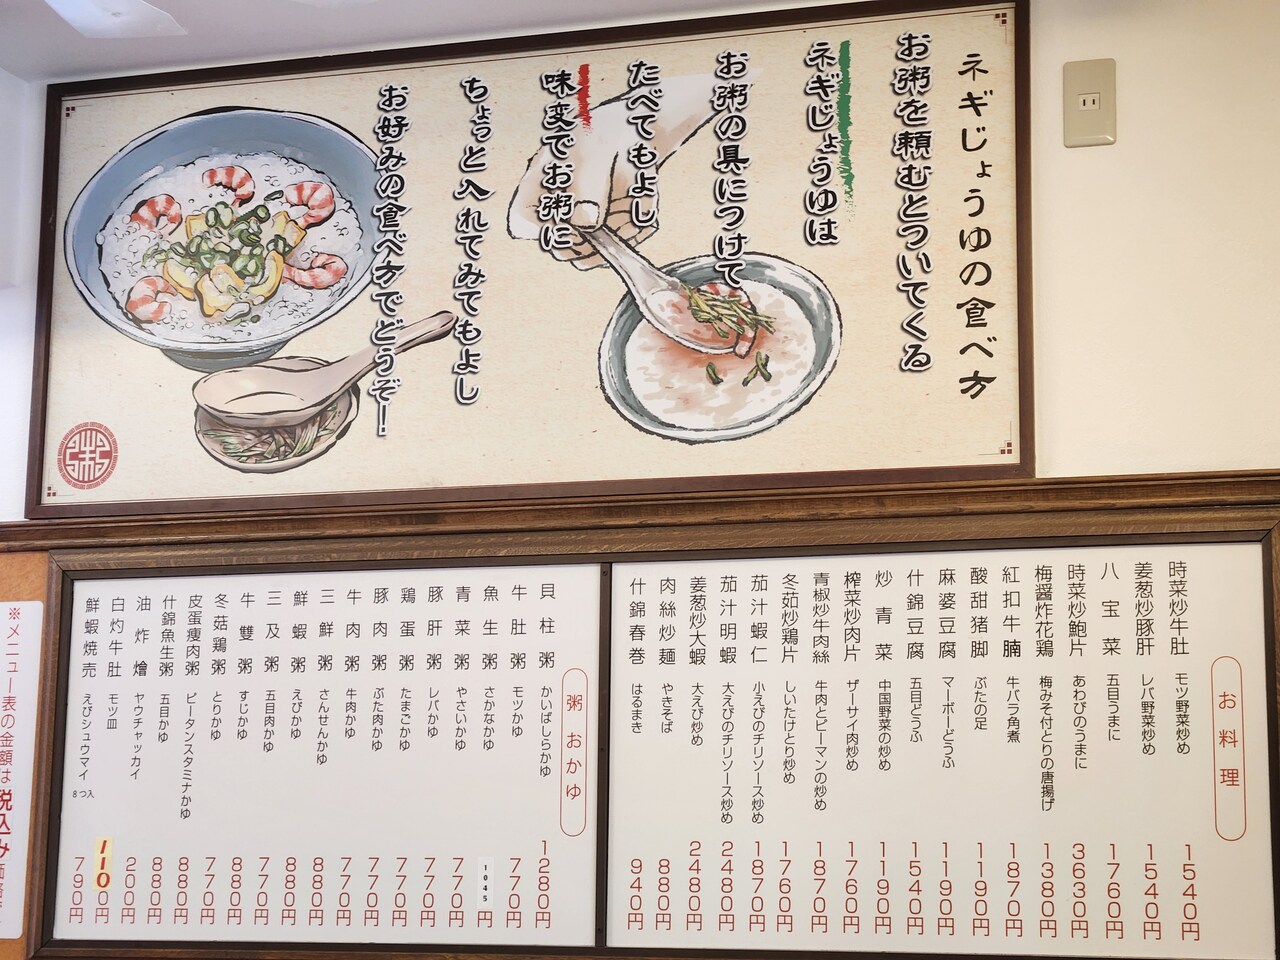 ネギじょうゆの食べ方
お粥を頼むとついてくる
ネギじょうゆは
お粥の具につけて
たべてもよし
味変でお粥に
ちょっと入れてみてもよし
お好みの食べ方でどうぞ!
お料理
時菜炒牛肚 モツ野菜炒め 1540円
姜葱炒豚肝 レバ野菜炒め 1540円
八宝菜 五目うまに 1760円
時菜炒鮑片 あわびのうまに 3630円
梅醤炸花鶏 梅みそ付とりの唐揚げ 1380円
紅扣牛腩 牛バラ角煮 1870円
酸甜猪脚 ぶたの足 1190円
麻婆豆腐 マーボーどうふ 1190円
什錦豆腐 五目どうふ 1540円
炒青菜 中国野菜の炒め 1190円
榨菜炒肉片 ザーサイ肉炒め 1760円
青椒炒牛肉絲 牛肉とピーマンの炒め 1870円
冬茹炒鶏片 しいたけとり炒め 1760円
茄汁蝦仁 小えびのチリソース炒め 1870円
茄汁明蝦 大えびのチリソース炒め 2480円
姜葱炒大蝦 大えび炒め 2480円
肉絲炒麺 やきそば 880円
什錦春巻 はるまき 940円
粥 おかゆ
貝柱粥 かいばしらかゆ 1280円
牛肚粥 モツかゆ 770円
魚生粥 さかなかゆ 1045円
青菜粥 やさいかゆ 770円
豚肝粥 レバかゆ 770円
鶏蛋粥 たまごかゆ 770円
豚肉粥 ぶた肉かゆ 770円
牛肉粥 牛肉かゆ 770円
三鮮粥 さんせんかゆ 880円
鮮蝦粥 えびかゆ 880円
三及粥 五目肉かゆ 770円
牛雙粥 すじかゆ 880円
冬菇鶏粥 とりかゆ 770円
皮蛋痩肉粥 ピータンスタミナかゆ 880円
什錦魚生粥 五目かゆ 880円
油炸燴 ヤウチャッカイ 200円
白灼牛肚 モツ皿 1100円
鮮蝦焼売 えびシュウマイ 8つ入 790円
※メニュー表の金額は税込み